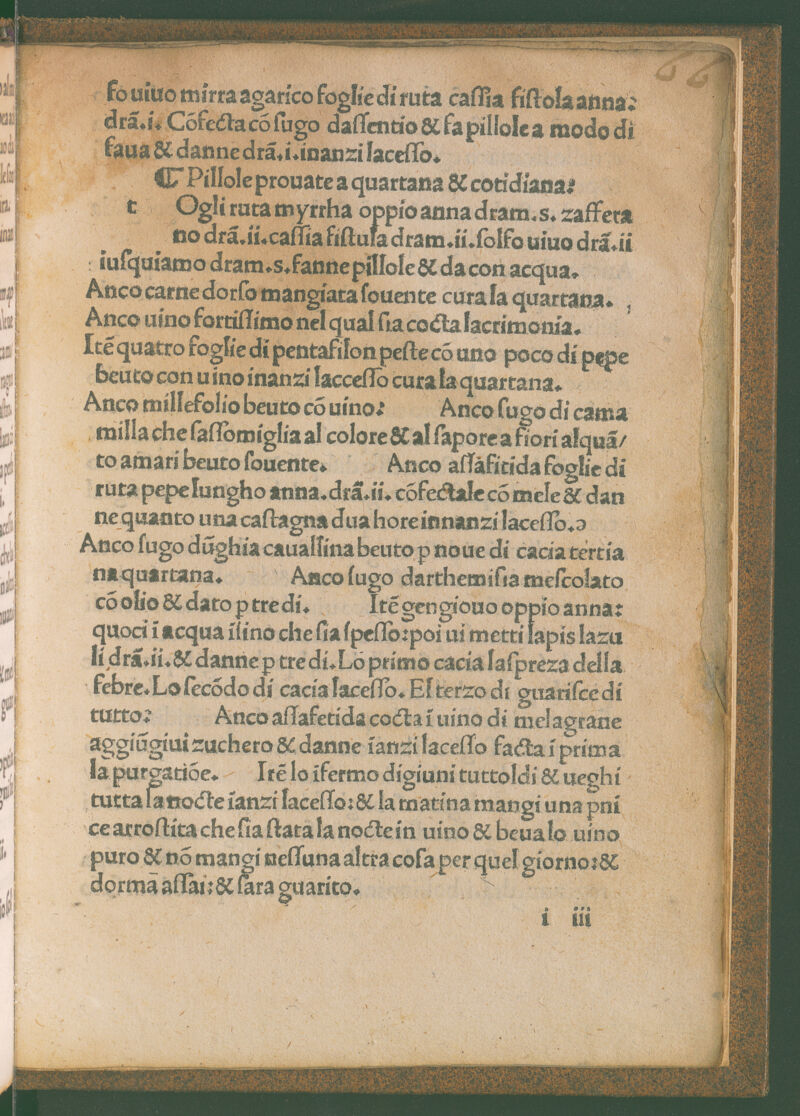 66
ſo uiuo mirra agarico foglie di ruta caſſia fiſtola anna:
drã.i. Cõfecta cõ ſugo daſſentio & fa pillole a modo di
faua & danne drã.i.inanzi laceſſo.
¶ Pillole prouate a quartana & cotidiana:
t Ogli ruta myrrha oppio anna dram.s. zaffera
no drã.ii.caſſia fiſtula dram.ii.ſolfo uiuo drã.ii
iuſquiamo dram.s.fanne pillole & da con acqua.
Anco carne dorſo mangiata ſouente cura la quartana.
Anco uino fortiſſimo nel qual ſia cocta lacrimonia.
Itẽ quatro foglie di pentafilon peſte cõ uno poco di pepe
beuto con uino inanzi lacceſſo cura la quartana.
Anco millefolio beuto cõ uino: Anco ſugo di cama
milla che ſaſſomiglia al colore & al ſapore a fiori alquã/
to amari beuto ſouente. Anco aſſafitida foglie di
ruta pepe lungho anna.drã.ii. cõfectale cõ mele & dan
ne quanto una caſtagna dua hore innanzi laceſſo.
Anco ſugo dũghia cauallina beuto p noue di cacia tertia
na quartana. Anco ſugo darthemiſia meſcolato
cõ olio & dato p tre di. Itẽ gengiouo oppio anna:
quoci ĩ acqua iſino che ſia ſpeſſo:poi ui metti lapis lazu
li drã.ii.& danne p tre di.Lo primo cacia laſpreza della
febre.Lo ſecõdo di cacia laceſſo. El terzo di guariſce di
tutto: Anco aſſafetida cocta ĩ uino di melagrane
aggiũgiui zuchero & danne ĩanzi laceſſo facta ĩ prima
la purgatiõe. Itẽ lo ifermo digiuni tutto ldi & ueghi
tutta la nocte ĩanzi laceſſo:& la matina mangi una pni
ce arroſtita che ſia ſtata la nocte in uino & beua lo uino
puro & nõ mangi neſſuna altra coſa per quel giorno:&
dorma aſſai:& ſara guarito.
i iii